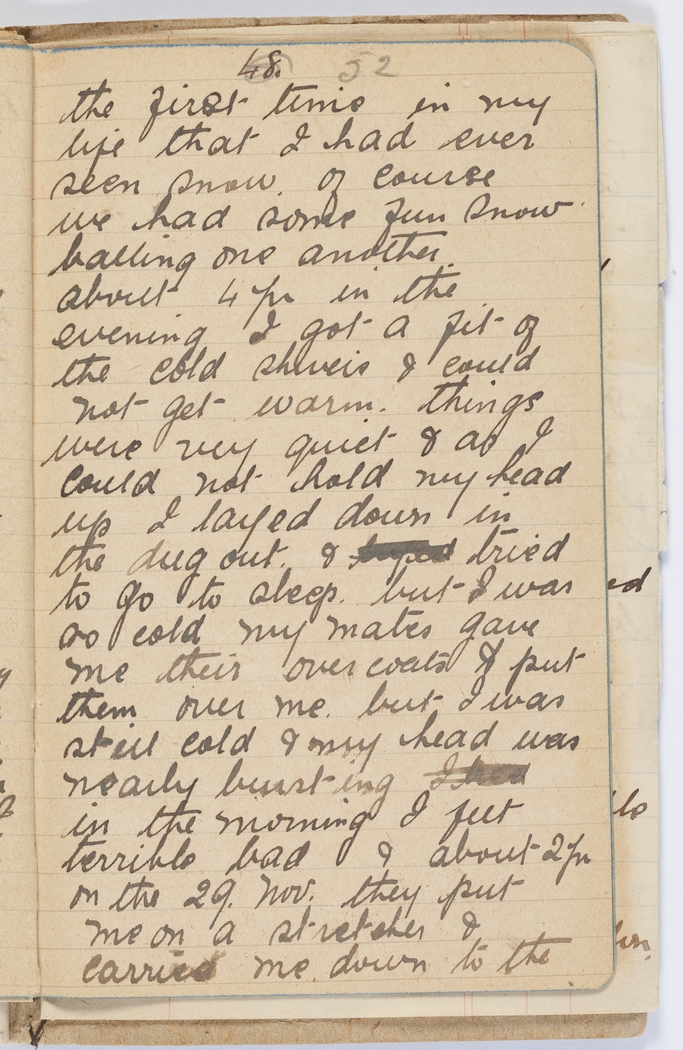 48. 52
the first time in my
life that I had ever
seen snow. of course
we had some fun snow
balling one another.
about 4 pm in the
evening I got a fit of
the cold shiveis & could
not get warm. things
were very quiet & as I
could not hold my head
up I layed down in
the dug out. & tried
to go to sleep. but I was
so cold my mates gave
me their overcoats & put
them over me. but I was
still cold & my head was
nearly bursting
in the morning I felt
terrible bad & about 2 pm
on the 29. Nov. they put
me on a stretcher &
carried me down to the
ed